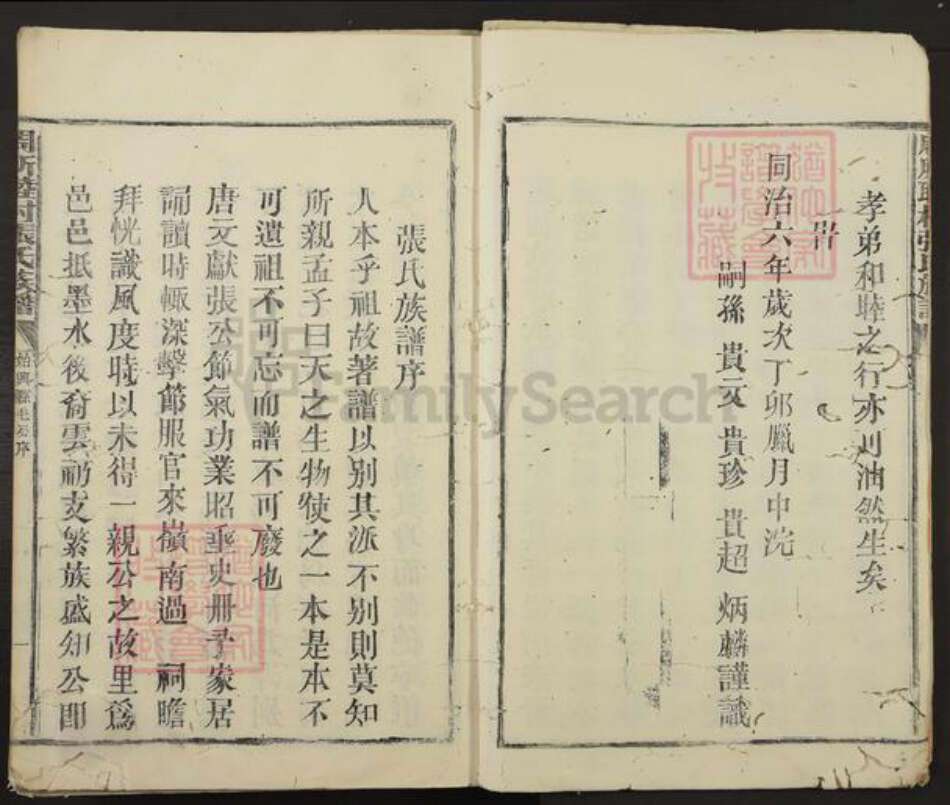 孝弟和睦之行亦可油然生矣
旹
同治六年歲次丁卯臘月中浣
嗣孫 貴文 貴珍 貴超 炳麟謹識
張氏族譜序
人本乎祖故著譜以別其派不別則莫知
所親孟子曰天之生物使之一本是本不
可遺祖不可忘而譜不可廢也
唐文獻張公節氣功業昭垂史冊予家居
誦讀時輒深擊節服官來嶺南過 祠瞻
拜恍識風度時以未得一親公之故里為
邑邑抵墨水後裔雲礽支繁族盛知公即
張氏族譜
始興縣
序
FamilySearch